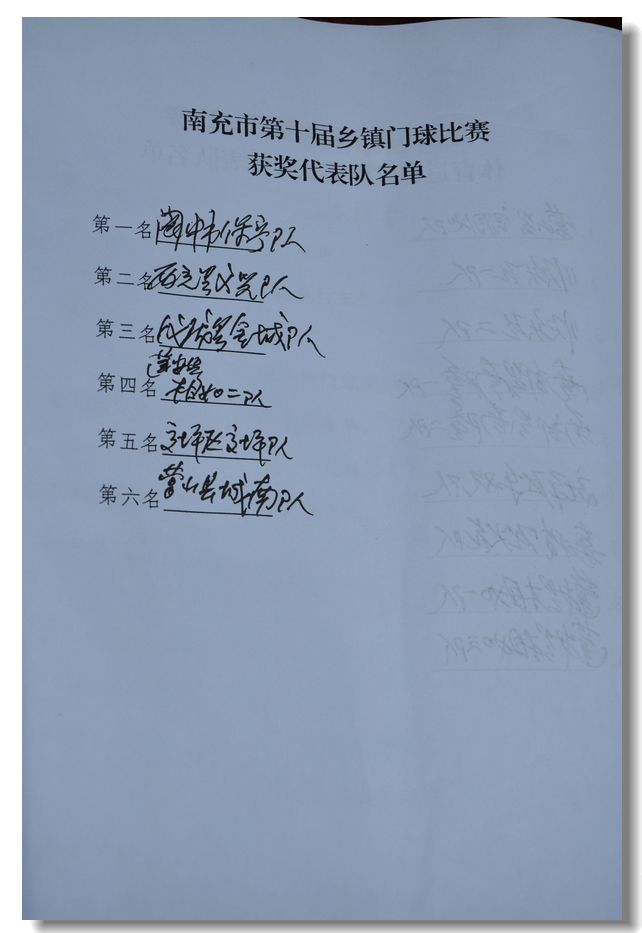 南充市第十届乡镇门球比赛
获奖代表队名单
第一名 阆中市保宁队
第二名 西充县队
第三名 仪陇县金城队
蓬安县
第四名 相如二队
第五名 高坪区高坪队
第六名 营山县城南队